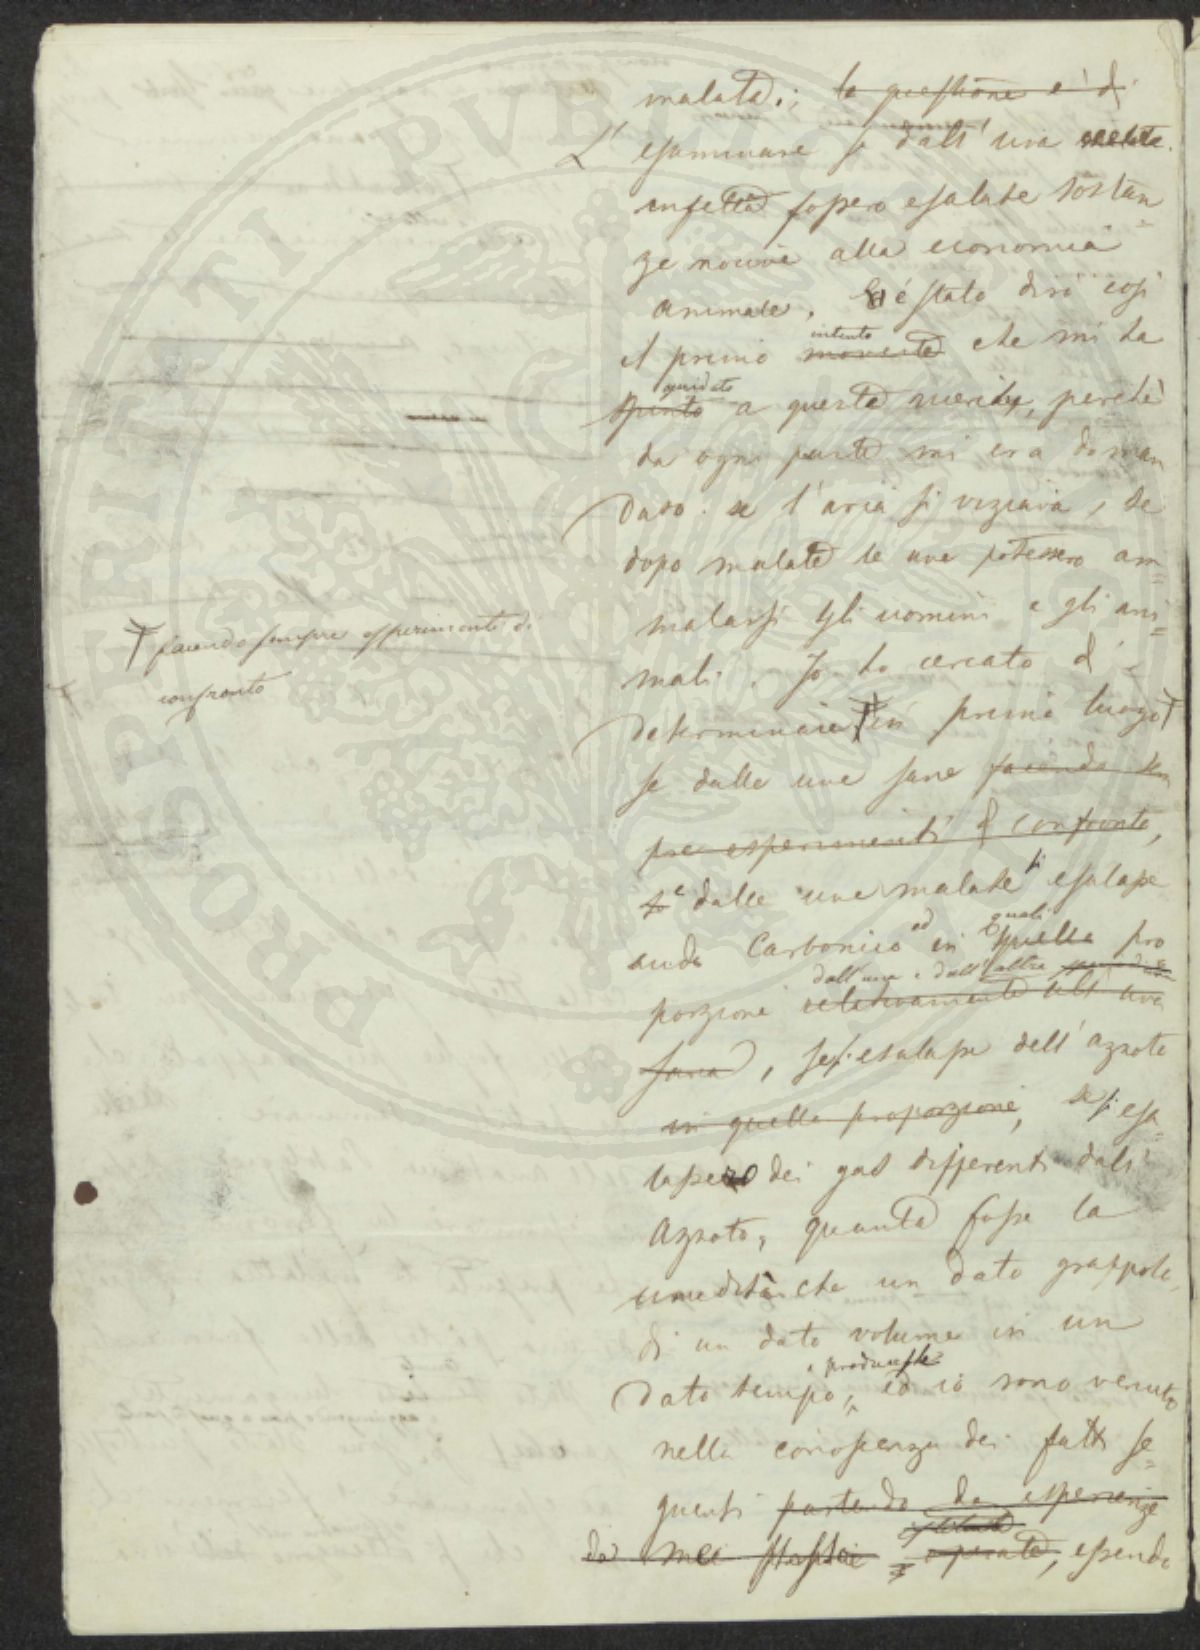 malata; la questione è di
L' esaminare se dall' uva malata
infetta fossero esalate sostan=
ze nocive alla economia
animale. è stato dirò così
il primo intento movente che mi ha
guidato spinto a questa ricerca, perchè
da ogni parte mi era doman
dato se l'aria si viziava, se
dopo malate le uve potessero am=
malarsi gli uomini e gli ani=
mali. Io ho cercato di
determinare in primo luogo
† facendo sempre esperimenti di
confronto
se dalle uve sane facendo sem
pre esperimenti di confronto,
e dalle uve malate si esalasse
acido Carbonico ed in quali quella pro
porzione dall' une e dall' altre relativamente all' uva
sana, se si esalasse dell' azoto
in quella proporzione, se si esa=
lassero dei gas differenti dall'
Azoto, quanta fosse la
umidità che un dato grappolo
di un dato volume in un
dato tempo producesse, ed io sono venuto
nella conoscenza dei fatti se=
guenti partendo da esperienze
da me istituite operate, essendo
PROSPERITATI PVBLICAE